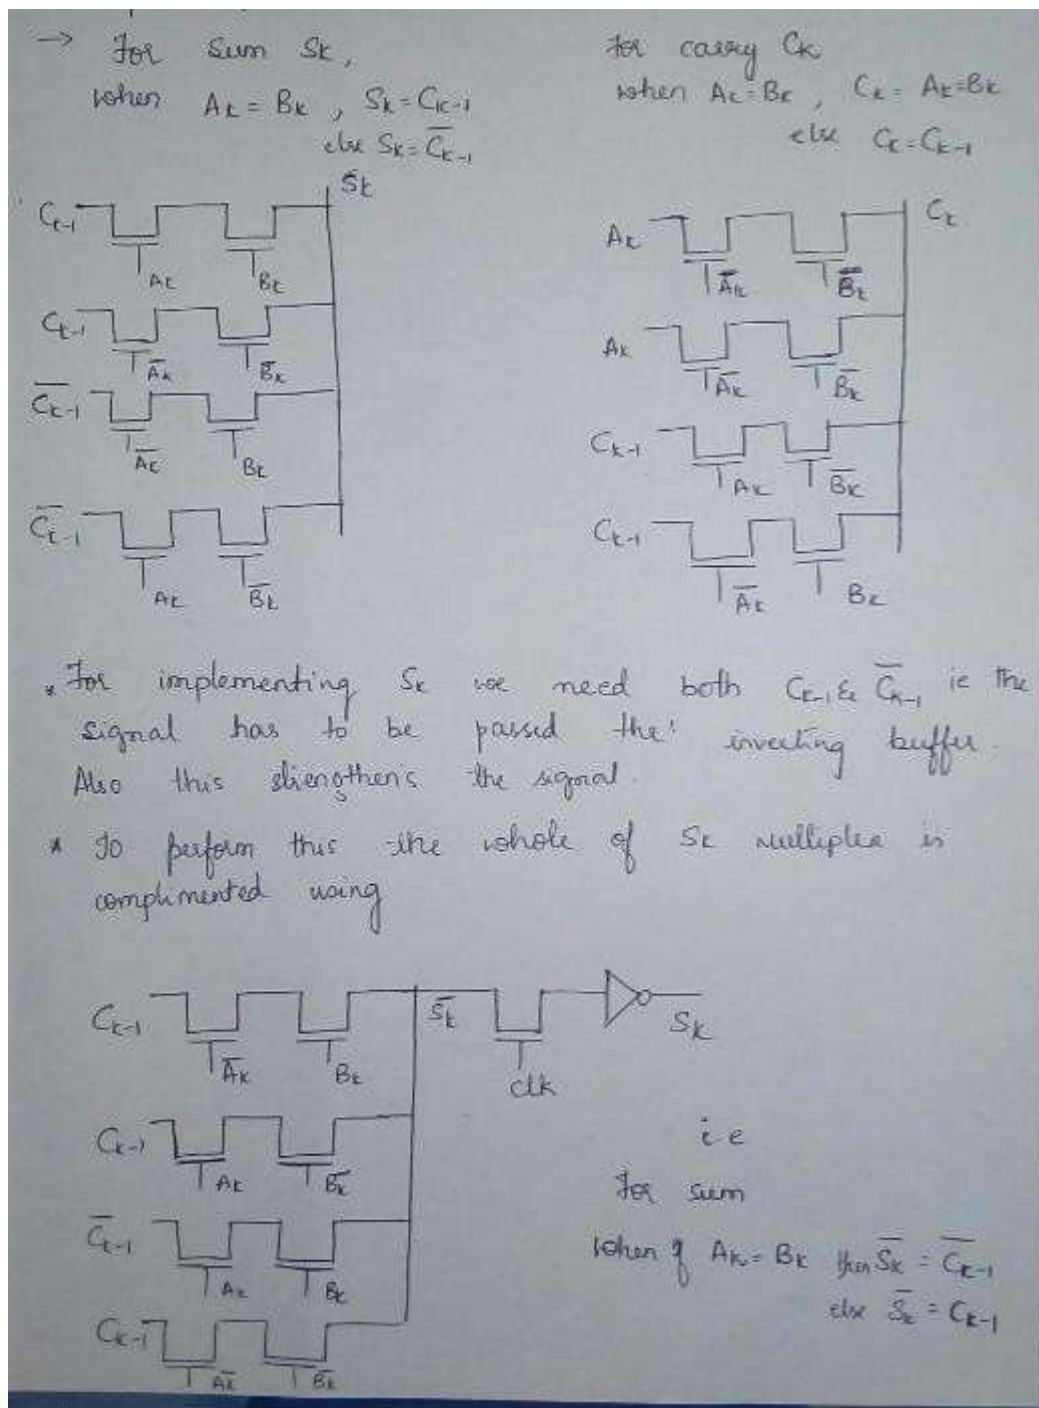 → For Sum Sk,
when Ak = Bk , Sk = Ck-1
else Sk = C̅k-1
For carry Ck
when Ak = Bk , Ck = Ak = Bk
else Ck = Ck-1
Sk
Ck-1
Ak Bk
Ck-1
A̅k B̅k
C̅k-1
A̅k Bk
C̅k-1
Ak B̅k
Ck
Ak
A̅k B̅k
Ak
A̅k B̅k
Ck-1
Ak B̅k
Ck-1
A̅k Bk
* For implementing Sk we need both Ck-1 & C̅k-1 ie the
signal has to be passed thr' inverting buffer.
Also this strengthens the signal.
* To perform this the whole of Sk multiplex is
complimented using
Ck-1
A̅k Bk
S̅k
clk
Sk
Ck-1
Ak B̅k
C̅k-1
Ak Bk
C̅k-1
A̅k B̅k
ie
For sum
when if Ak = Bk then S̅k = C̅k-1
else S̅k = Ck-1